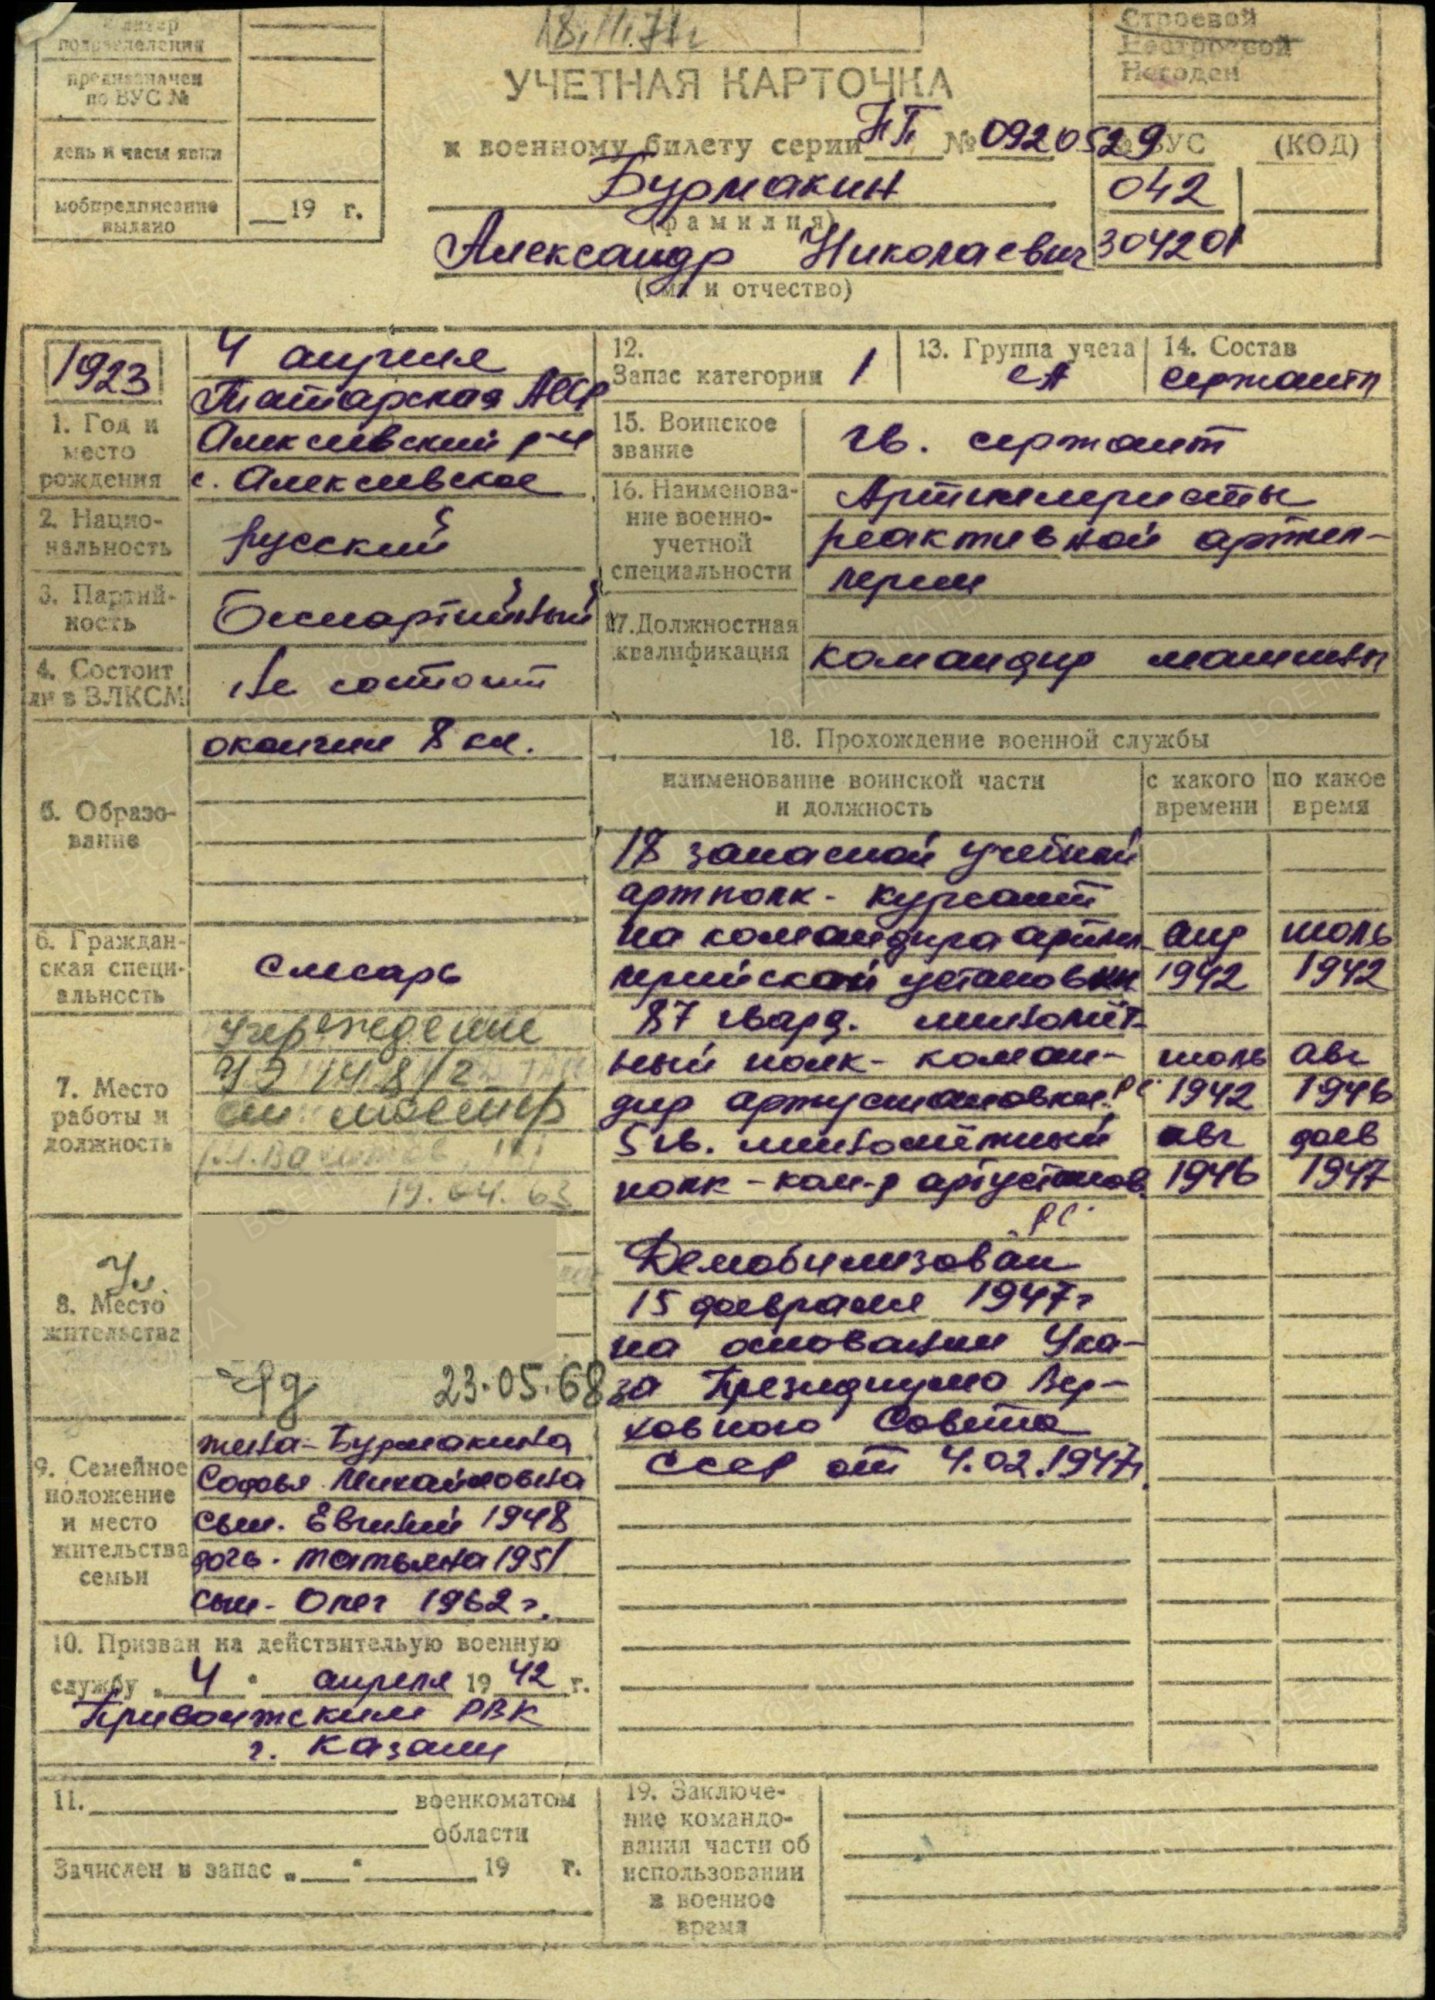 18.11.71г
подразделения
предназначен
по ВУС №
день и часы явки
мобпредписание
выдано
19 г.
Строевой
Нестроевой
Негоден
УЧЕТНАЯ КАРТОЧКА
к военному билету серии НП № 0920529
ВУС (КОД)
Бурмакин
042
(фамилия)
Александр Николаевич
304201
(имя и отчество)
1923
1. Год и
место
рождения
4 апреля
Татарская АССР
Алексеевский р-н
с. Алексеевское
2. Нацио-
нальность
русский
3. Партий-
ность
Беспартийный
4. Состоит
ли в ВЛКСМ
Не состоит
12.
Запас категории 1
13. Группа учета
СА
14. Состав
сержанты
15. Воинское
звание
гв. сержант
16. Наименова-
ние военно-
учетной
специальности
Артиллеристы
реактивной артил-
лерии
17. Должностная
квалификация
командир машины
5. Образо-
вание
окончил 8 кл.
6. Граждан-
ская специ-
альность
слесарь
7. Место
работы и
должность
Учреждение
УЭ 148/2
ст. мастер
19.04.63
Ул.
8. Место
жительства
23.05.68
9. Семейное
положение
и место
жительства
семьи
жена - Бурмакина
Софья Михайловна
сын. Евгений 1948
дочь. Татьяна 1951
сын. Олег 1962 г.
10. Призван на действительую военную
службу „ 4 " апреля 19 42 г.
Приволжским РВК
г. Казани
18. Прохождение военной службы
наименование воинской части
и должность
с какого
времени
по какое
время
18 запасной учебный
артполк - курсант
на командира артил- апр июль
лерийской установки 1942 1942
87 гвард. миномёт-
ный полк - коман- июль авг
дир артустановки РС 1942 1946
5 гв. миномётный авг фев
полк - ком-р артустанов. 1946 1947
РС
Демобилизован
15 февраля 1947г
на основании Ука-
за Президиума Вер-
ховного Совета
СССР от 4.02.1947г.
11. военкоматом
области
Зачислен в запас „ " 19 г.
19. Заключе-
ние командо-
вания части об
использовании
в военное
время